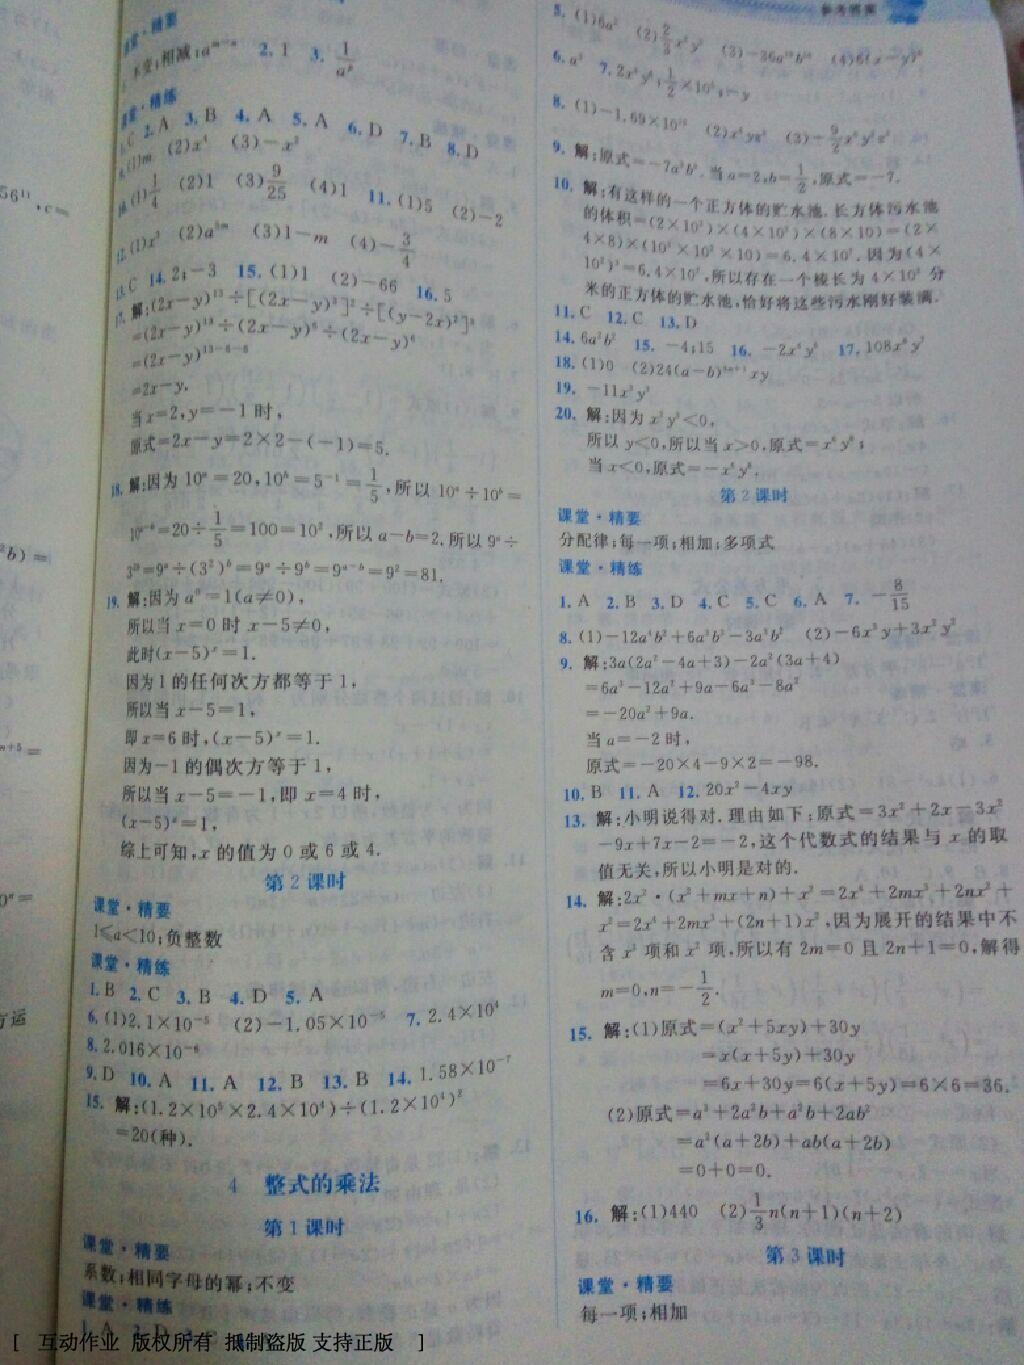 参考答案
课堂·精要
不变;相减;a^{m-n} 2. 1 3. \frac{1}{a^p}
课堂·精练
1. C 2. A 3. B 4. A 5. A 6. D 7. B 8. D
9. (1)m (2)x⁴ (3)-x³
10. (1)\frac{1}{4} (2)1 (3)\frac{9}{25} (4)1 11. (1)5 (2)-2
12. (1)x³ (2)a^{5m} (3)1-m (4)-\frac{3}{4}
13. C 14. 2;-3 15. (1)1 (2)-66 16. 5
17. 解:(2x-y)¹³÷[(2x-y)³]²÷[(y-2x)²]³
=(2x-y)¹³÷(2x-y)⁶÷(2x-y)⁶
=(2x-y)^{13-6-6}
=2x-y.
当x=2,y=-1时,
原式=2x-y=2×2-(-1)=5.
18. 解:因为10^a=20,10^b=5^{-1}=\frac{1}{5},所以10^a÷10^b=
10^{a-b}=20÷\frac{1}{5}=100=10²,所以a-b=2.所以9^a÷
3^{2b}=9^a÷(3²)^b=9^a÷9^b=9^{a-b}=9²=81.
19. 解:因为a⁰=1(a≠0),
所以当x=0时x-5≠0,
此时(x-5)^x=1.
因为1的任何次方都等于1,
所以当x-5=1,
即x=6时,(x-5)^x=1.
因为-1的偶次方等于1,
所以当x-5=-1,即x=4时,
(x-5)^x=1,
综上可知,x的值为0或6或4.
第2课时
课堂·精要
1≤a<10;负整数
课堂·精练
1. B 2. C 3. B 4. D 5. A
6. (1)2.1×10^{-5} (2)-1.05×10^{-5} 7. 2.4×10⁴
8. 2.016×10^{-6}
9. D 10. A 11. A 12. B 13. B 14. 1.58×10^{-7}
15. 解:(1.2×10⁵×2.4×10⁴)÷(1.2×10⁴)²
=20(种).
4 整式的乘法
第1课时
课堂·精要
系数;相同字母的幂;不变
课堂·精练
1. A 2. D
5. (1)6a² (2)\frac{2}{3}x³y³ (3)-36a¹⁰b¹⁰
6. a³
8. (1)-1.69×10¹⁰
9. 解:原式=-7a³b³.当a=2,b=\frac{1}{2},原式=-7.
10. 解:有这样的一个正方体的贮水池.长方体污水池
的体积=(2×10³)×(4×10²)×(8×10)=(2×
4×8)×(10³×10²×10)=6.4×10⁷.因为(4×
10²)³=6.4×10⁷,所以存在一个棱长为4×10²分
米的正方体的贮水池,恰好将这些污水刚好装满.
11. C 12. C 13. D
14. 6a²b² 15. -4;15 16. -2x⁶y⁸ 17. 108x⁸y⁷
18. (1)0 (2)24(a-b)^{3n+3}xy
19. -11x³y³
20. 解:因为x²y³<0,
所以y<0,所以当x>0,原式=x⁶y⁶;
当x<0,原式=-x⁶y⁶.
第2课时
课堂·精要
分配律;每一项;相加;多项式
课堂·精练
1. A 2. B 3. D 4. C 5. C 6. A 7. -\frac{8}{15}
8. (1)-12a⁴b²+6a³b³-3a³b² (2)-6x³y+3x²y²
9. 解:3a(2a²-4a+3)-2a²(3a+4)
=6a³-12a²+9a-6a³-8a²
=-20a²+9a.
当a=-2时,
原式=-20×4-9×2=-98.
10. B 11. A 12. 20x²-4xy
13. 解:小明说得对.理由如下:原式=3x²+2x-3x²
-9x+7x-2=-2,这个代数式的结果与x的取
值无关,所以小明是对的.
14. 解:2x²·(x²+mx+n)+x²=2x⁴+2mx³+2nx²+
x²=2x⁴+2mx³+(2n+1)x²,因为展开的结果中不
含x³项和x²项,所以有2m=0且2n+1=0,解得
m=0,n=-\frac{1}{2}.
15. 解:(1)原式=(x²+5xy)+30y
=x(x+5y)+30y
=6x+30y=6(x+5y)=6×6=36.
(2)原式=a³+2a²b+a²b+2ab²
=a²(a+2b)+ab(a+2b)
=0+0=0.
16. 解:(1)440 (2)\frac{1}{3}n(n+1)(n+2)
第3课时
课堂·精要
每一项;相加
[ 互动作业 版权所有 抵制盗版 支持正版 ]